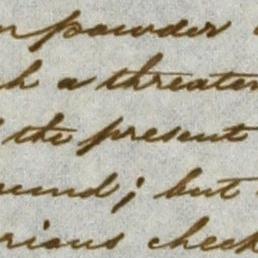 powder
a threaten
the present
; but
rious check